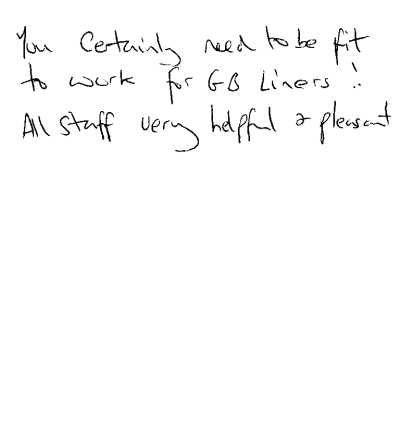 You Certainly need to be fit
to work for GB Liners !!
All staff very helpful & pleasant